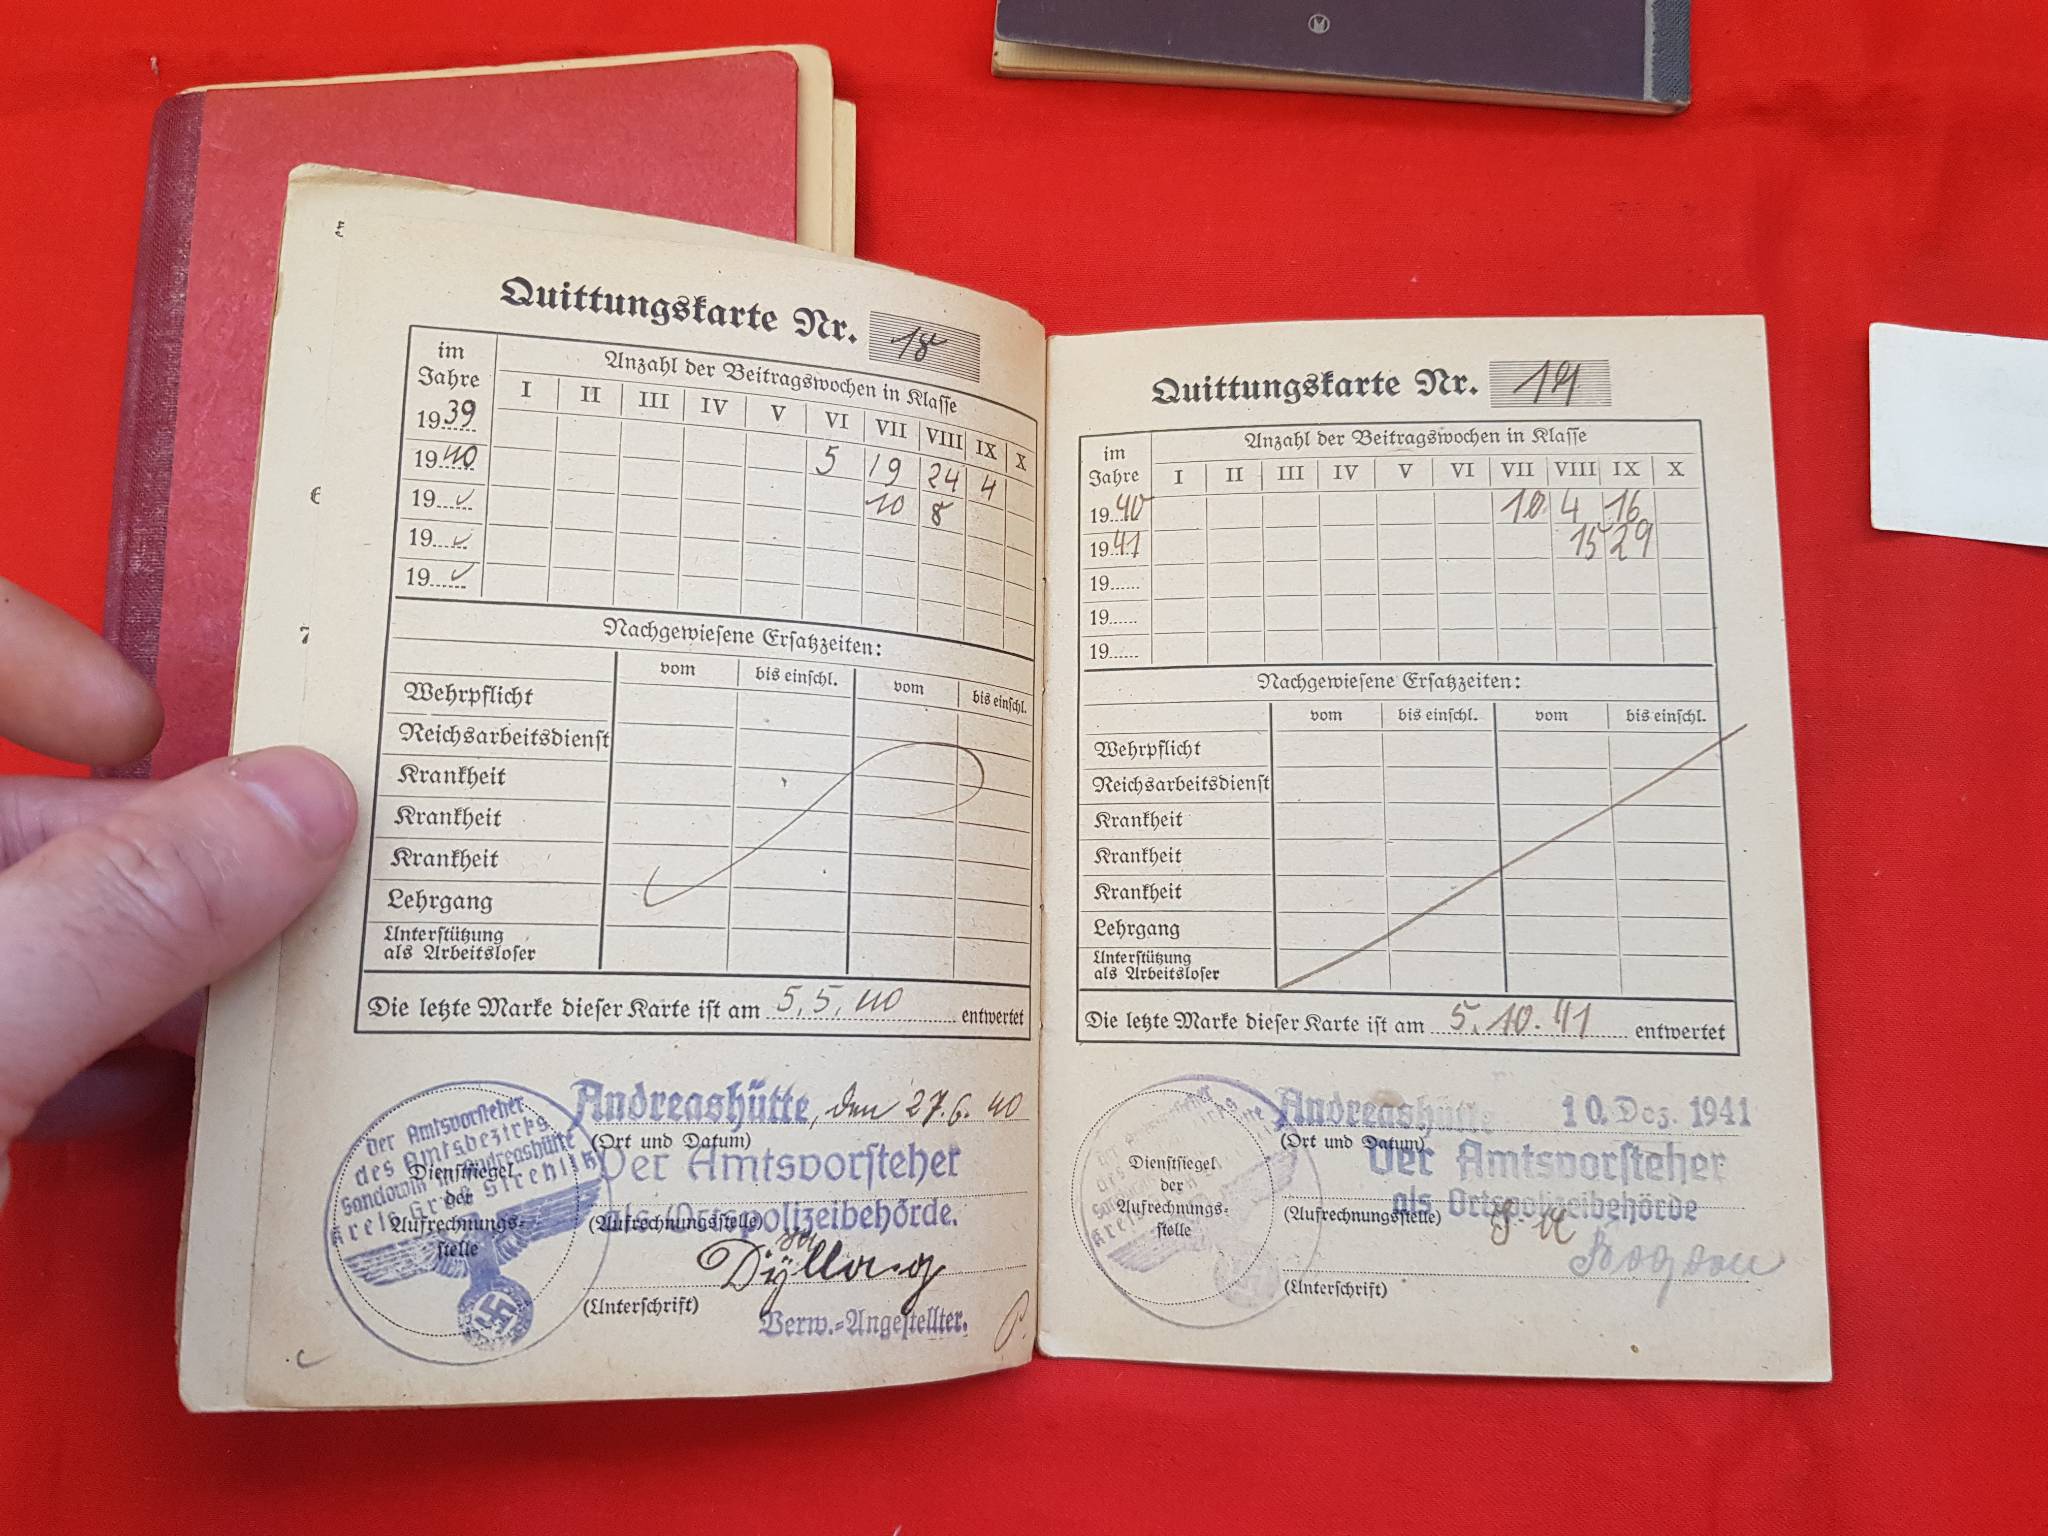 Quittungskarte Nr. 18
im Jahre
Anzahl der Beitragswochen in Klasse
I II III IV V VI VII VIII IX X
1939 5 19 24 4
1940 10 8
19
19
19
Nachgewiesene Ersatzzeiten:
vom bis einschl. vom bis einschl.
Wehrpflicht
Reichsarbeitsdienst
Krankheit
Krankheit
Krankheit
Lehrgang
Unterstützung
als Arbeitsloser
Die letzte Marke dieser Karte ist am 5.5.40 entwertet
Andreashütte, den 27.6.40
(Ort und Datum)
Der Amtsvorsteher
als Ortspolizeibehörde.
(Aufrechnungsstelle)
(Unterschrift)
Verw.-Angestellter.
Der Amtsvorsteher
des Amtsbezirks
Sandowitz Andreashütte
Kreis Groß Strehlitz
Dienstsiegel
der
Aufrechnungs-
stelle
6
7
Quittungskarte Nr. 19
im Jahre
Anzahl der Beitragswochen in Klasse
I II III IV V VI VII VIII IX X
1940 10 4 16
1941 15 29
19
19
19
Nachgewiesene Ersatzzeiten:
vom bis einschl. vom bis einschl.
Wehrpflicht
Reichsarbeitsdienst
Krankheit
Krankheit
Krankheit
Lehrgang
Unterstützung
als Arbeitsloser
Die letzte Marke dieser Karte ist am 5.10.41 entwertet
Andreashütte 10. Dez. 1941
(Ort und Datum)
Der Amtsvorsteher
als Ortspolizeibehörde
(Aufrechnungsstelle)
(Unterschrift)
Dienstsiegel
der
Aufrechnungs-
stelle